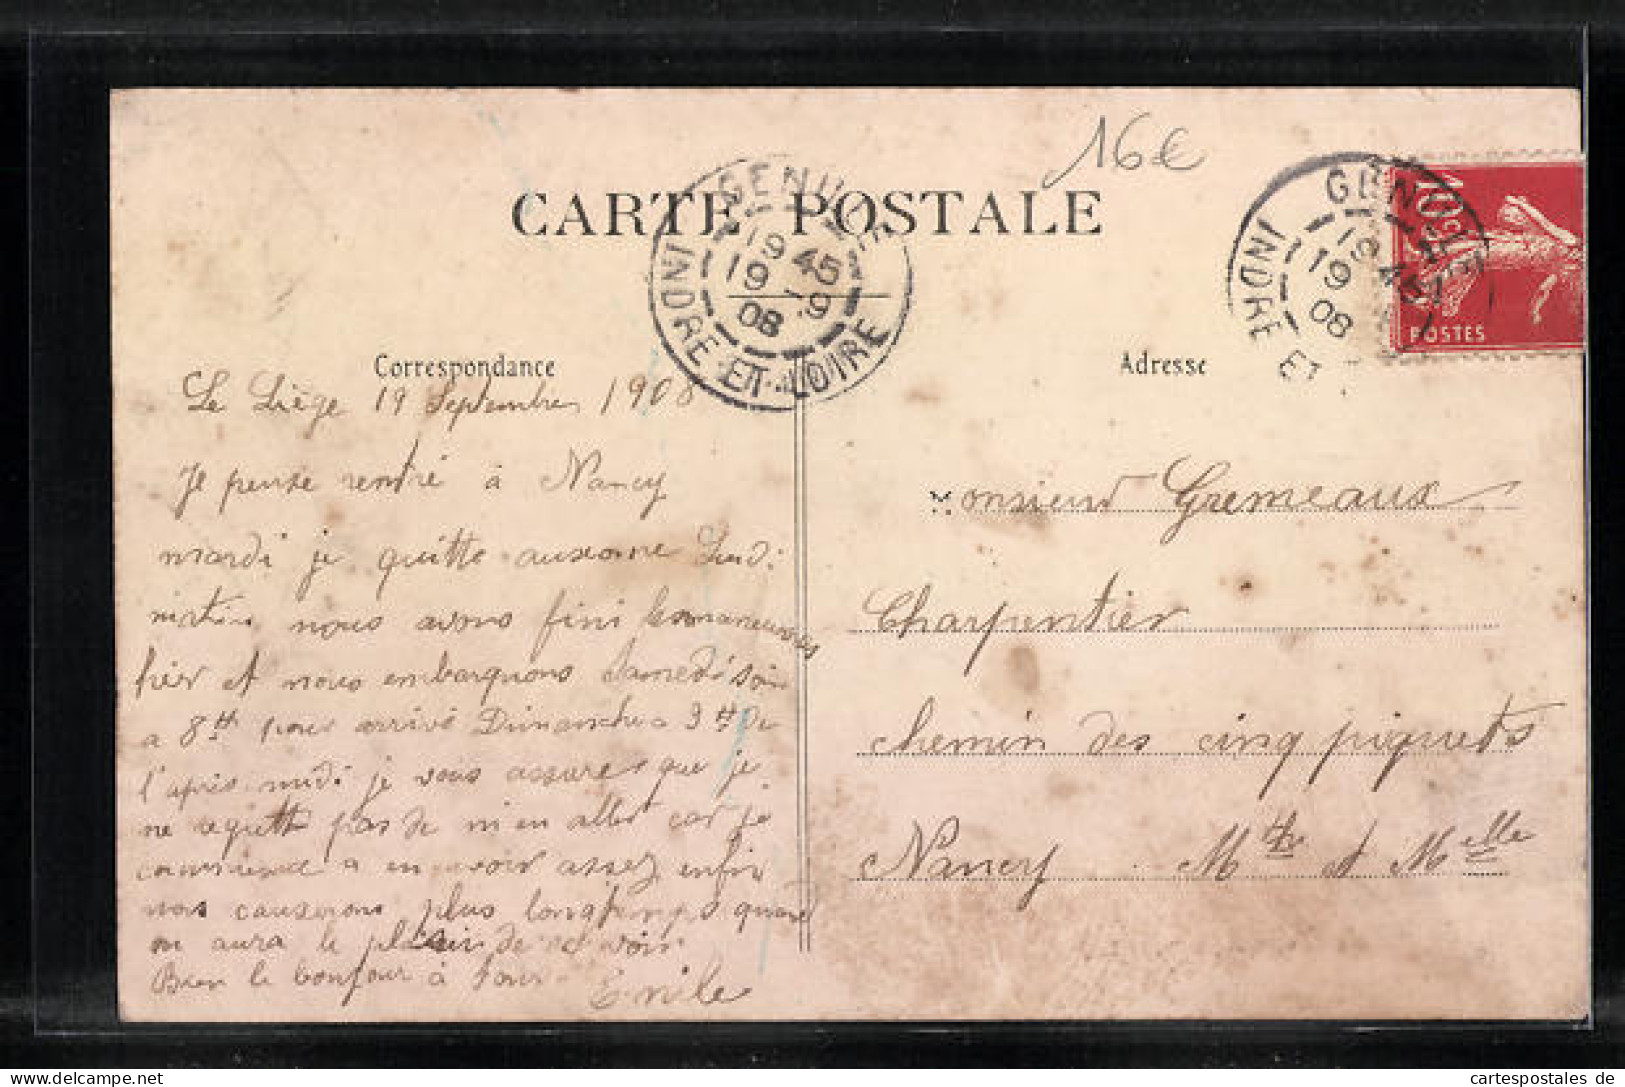 16€
CARTE POSTALE
GENILLÉ
19 45
19 -9
08
INDRE-ET-LOIRE
GENILLÉ
19 45
19
08
INDRE ET
10c
POSTES
Correspondance
Le Liège 19 Septembre 1908
Je pense rentré à Nancy
mardi je quitte auxonne Lundi
matin nous avons fini les manœuvres
hier et nous embarquons Samedi soir
a 8H pour arrivé Dimanche a 3H de
l'après midi je vous assure que je
ne regrette pas de m'en aller car je
commence a en avoir assez enfin
nous causerons plus longtemps quand
on aura le plaisir de se voir
Bien le bonjour à tous
Emile
Adresse
Monsieur Gremeaux
Charpentier
chemin des cinq piquets
Nancy. Mthe et Melle
delcampe.net
cartespostales de